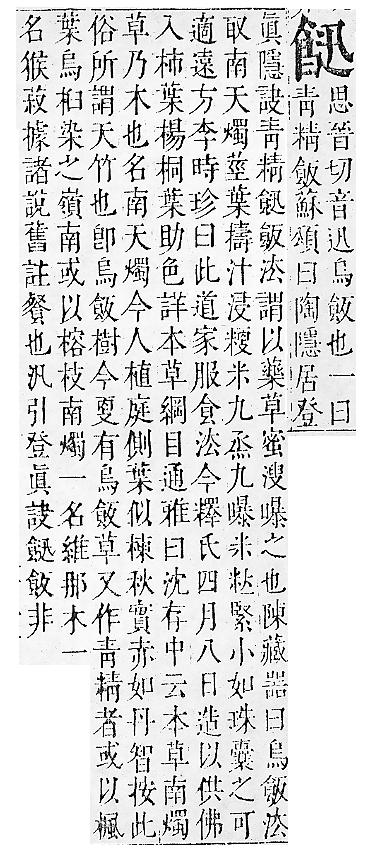 䭀
思晉切音迅烏飯也一曰
靑精飯蘇頌曰陶隱居登
眞隱訣靑精䭀飯法謂以藥草蜜溲曝之也陳藏器曰烏飯法
取南天燭莖葉擣汁浸粳米九烝九曝米粒緊小如珠囊之可
適遠方李時珍曰此道家服食法今釋氏四月八日造以供佛
入柿葉楊桐葉助色詳本草綱目通雅曰沈存中云本草南燭
草乃木也名南天燭今人植庭側葉似楝秋實赤如丹智按此
俗所謂天竹也卽烏飯樹今更有烏飯草又作靑精者或以楓
葉烏桕染之嶺南或以榕枝南燭一名維那木一
名猴菽據諸說舊註餐也汎引登眞訣䭀飯非